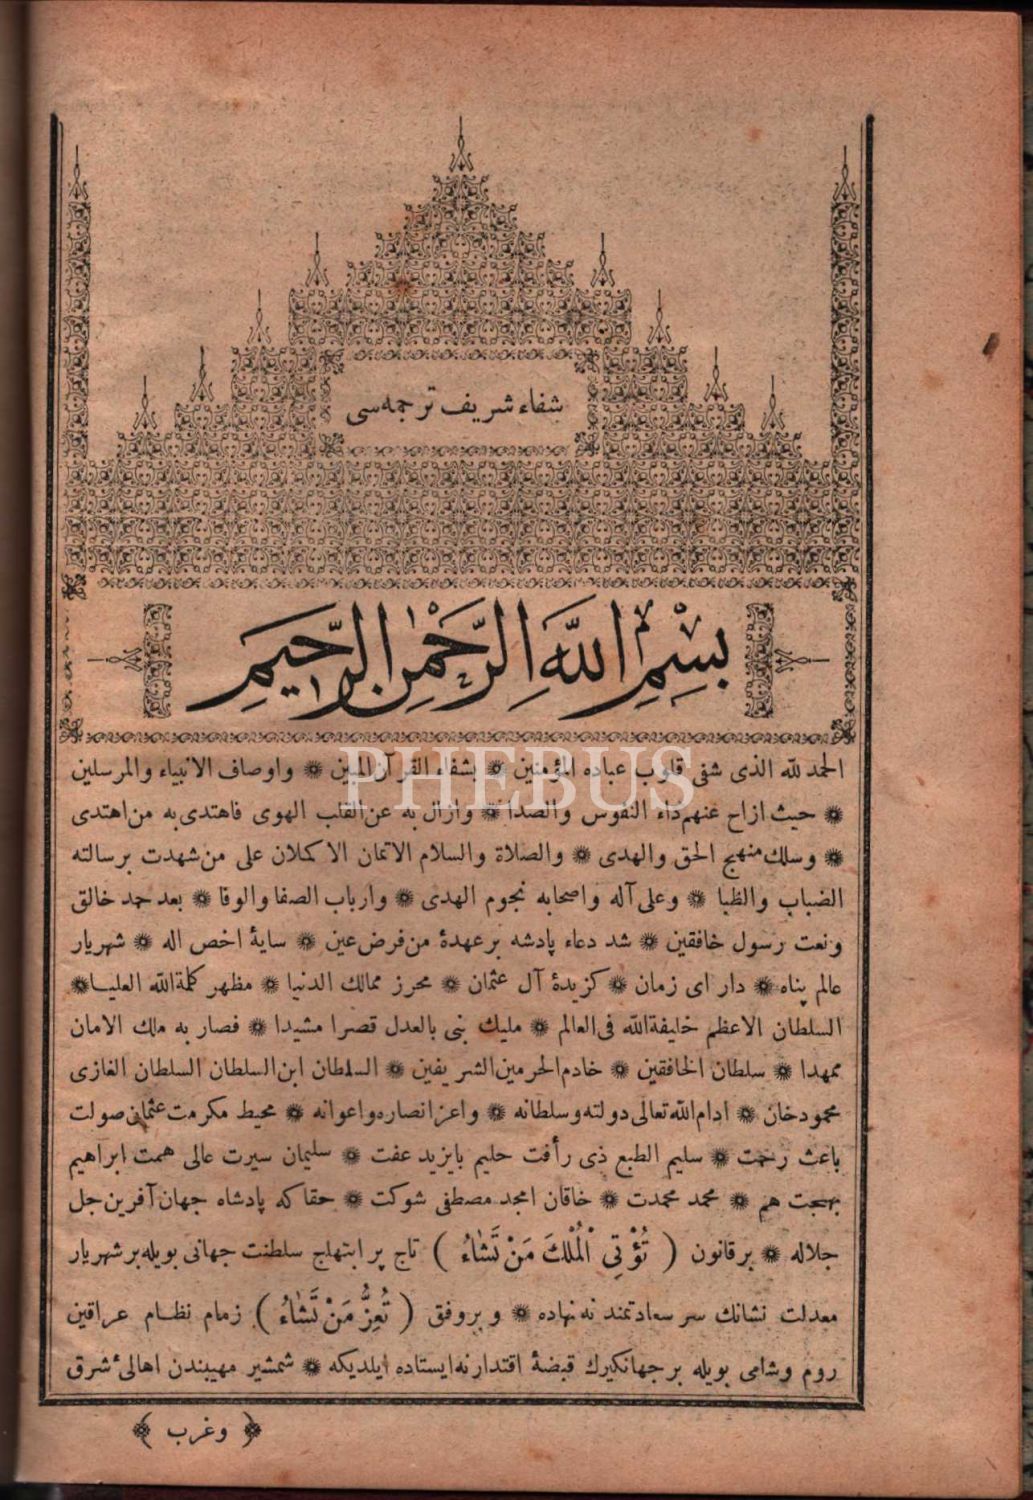 شفاء شریف ترجمه‌سی
بِسْمِ اللّٰهِ الرَّحْمٰنِ الرَّحِيمِ
PHEBUS
الحمد لله الذى شفى قلوب عباده المؤمنين ❋ بشفاء القرآن المبين ❋ واوصاف الانبياء والمرسلين
❋ حيث ازاح عنهم داء النفوس والصدا ❋ وازال به عن القلب الهوى فاهتدى به من اهتدى
❋ وسلك منهج الحق والهدى ❋ والصلاة والسلام الاتمان الاكملان على من شهدت برسالته
الضباب والظبا ❋ وعلى آله واصحابه نجوم الهدى ❋ وارباب الصفا والوفا ❋ بعد حمد خالق
ونعت رسول خافقين ❋ شد دعاء پادشه بر عهدۀ من فرض عين ❋ سايۀ اخص اله ❋ شهريار
عالم پناه ❋ دار اى زمان ❋ كزيدۀ آل عثمان ❋ محرز ممالك الدنيا ❋ مظهر كلمة الله العليا ❋
السلطان الاعظم خليفة الله فى العالم ❋ مليك بنى بالعدل قصرا مشيدا ❋ فصار به ملك الامان
ممهدا ❋ سلطان الخافقين ❋ خادم الحرمين الشريفين ❋ السلطان ابن السلطان السلطان الغازى
محمود خان ❋ ادام الله تعالى دولته وسلطانه ❋ واعز انصاره واعوانه ❋ محيط مكرمت عثمانى صولت
باعث رحمت ❋ سليم الطبع ذى رأفت حليم بايزيد عفت ❋ سليمان سيرت عالى همت ابراهيم
بهجت هم ❋ محمد محمدت ❋ خاقان امجد مصطفى شوكت ❋ حقا كه پادشاه جهان آفرين جل
جلاله ❋ بر قانون ( تُؤْتِى الْمُلْكَ مَنْ تَشٰاءُ ) تاج پر ابتهاج سلطنت جهانى بويله بر شهريار
معدلت نشانك سر سعادتمند نه نهاده ❋ و بروفق ( تُعِزُّ مَنْ تَشٰاءُ ) زمام نظام عراقين
روم وشامى بويله بر جهانكيرك قبضۀ اقتدارنه ايستاده ايلديكه ❋ شمشير مهيبندن اهالىٔ شرق
﴿ وغرب ﴾